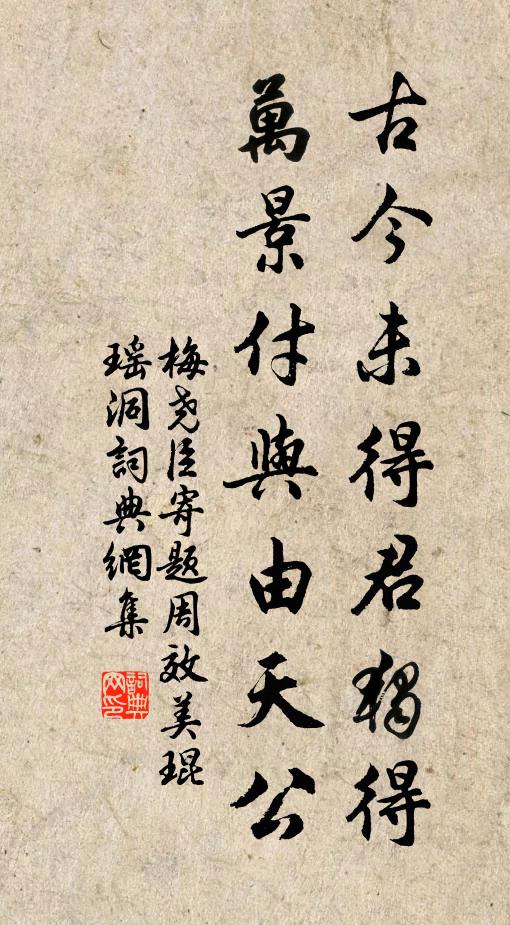 古今未得君獨得
萬景付與由天公
梅堯臣寄题周效美琨
瑶洞詞典網集
詞典网印